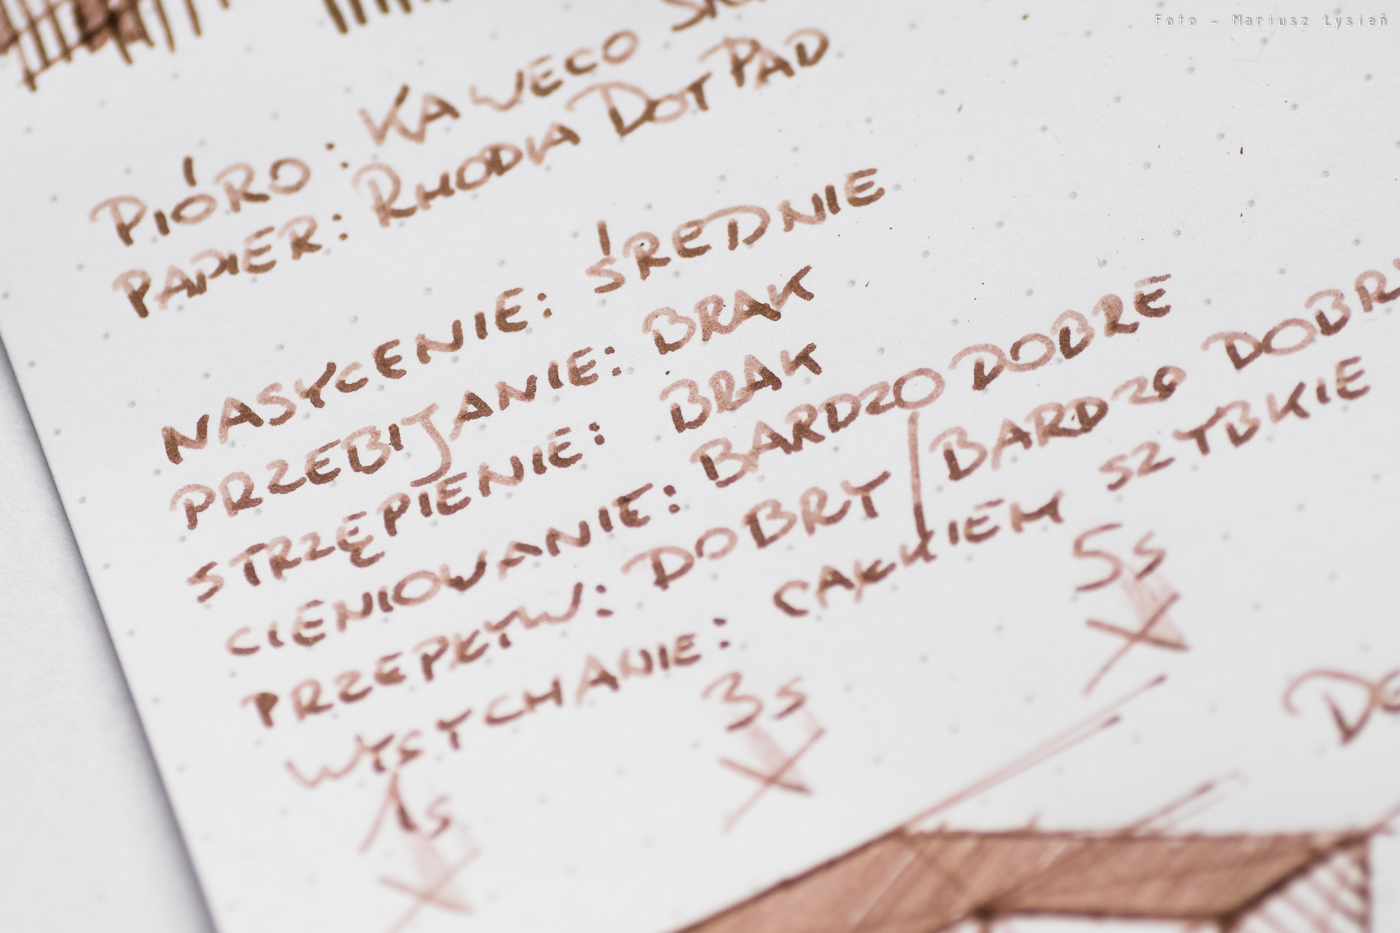 Foto - Mariusz Łysień
PIÓRO: KAWECO
PAPIER: RHODIA DOTPAD
NASYCENIE: ŚREDNIE
PRZEBIJANIE: BRAK
STRZĘPIENIE: BRAK
CIENIOWANIE: BARDZO DOBRE
PRZEPŁYW: DOBRY/BARDZO
WYSYCHANIE: CAŁKIEM SZYBKIE
1s 3s 5s